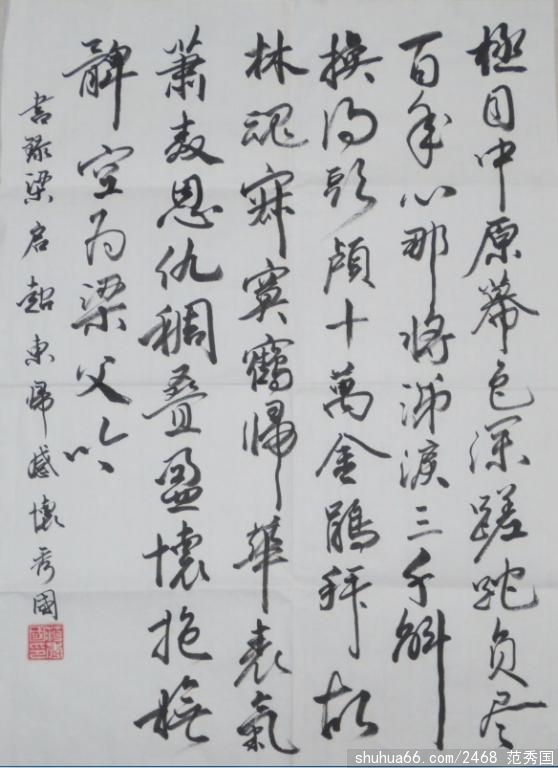 極目中原幕色深蹉跎負尽
百年心那将涕淚三千斛
換得頭顱十萬金鵑拜故
林魂寂寞鶴歸華表氣
蕭森恩仇稠叠盈懷抱撫
髀空為梁父吟
書録梁启超東歸感懷秀國
shuhua66.com/2468 范秀国